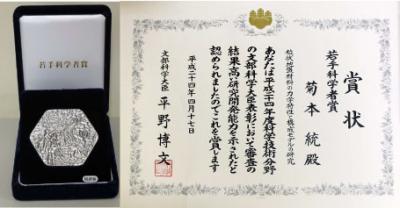 若手科学者賞
賞状
若手科学者賞
菊本統殿
粒状地質材料の力学特性と構成モデルの研究
あなたは平成二十四年度科学技術分野
の文部科学大臣表彰において審査の
結果高い研究開発能力を示されたと
認められましたのでこれを賞します
平成二十四年四月十七日
文部科学大臣 平野博文